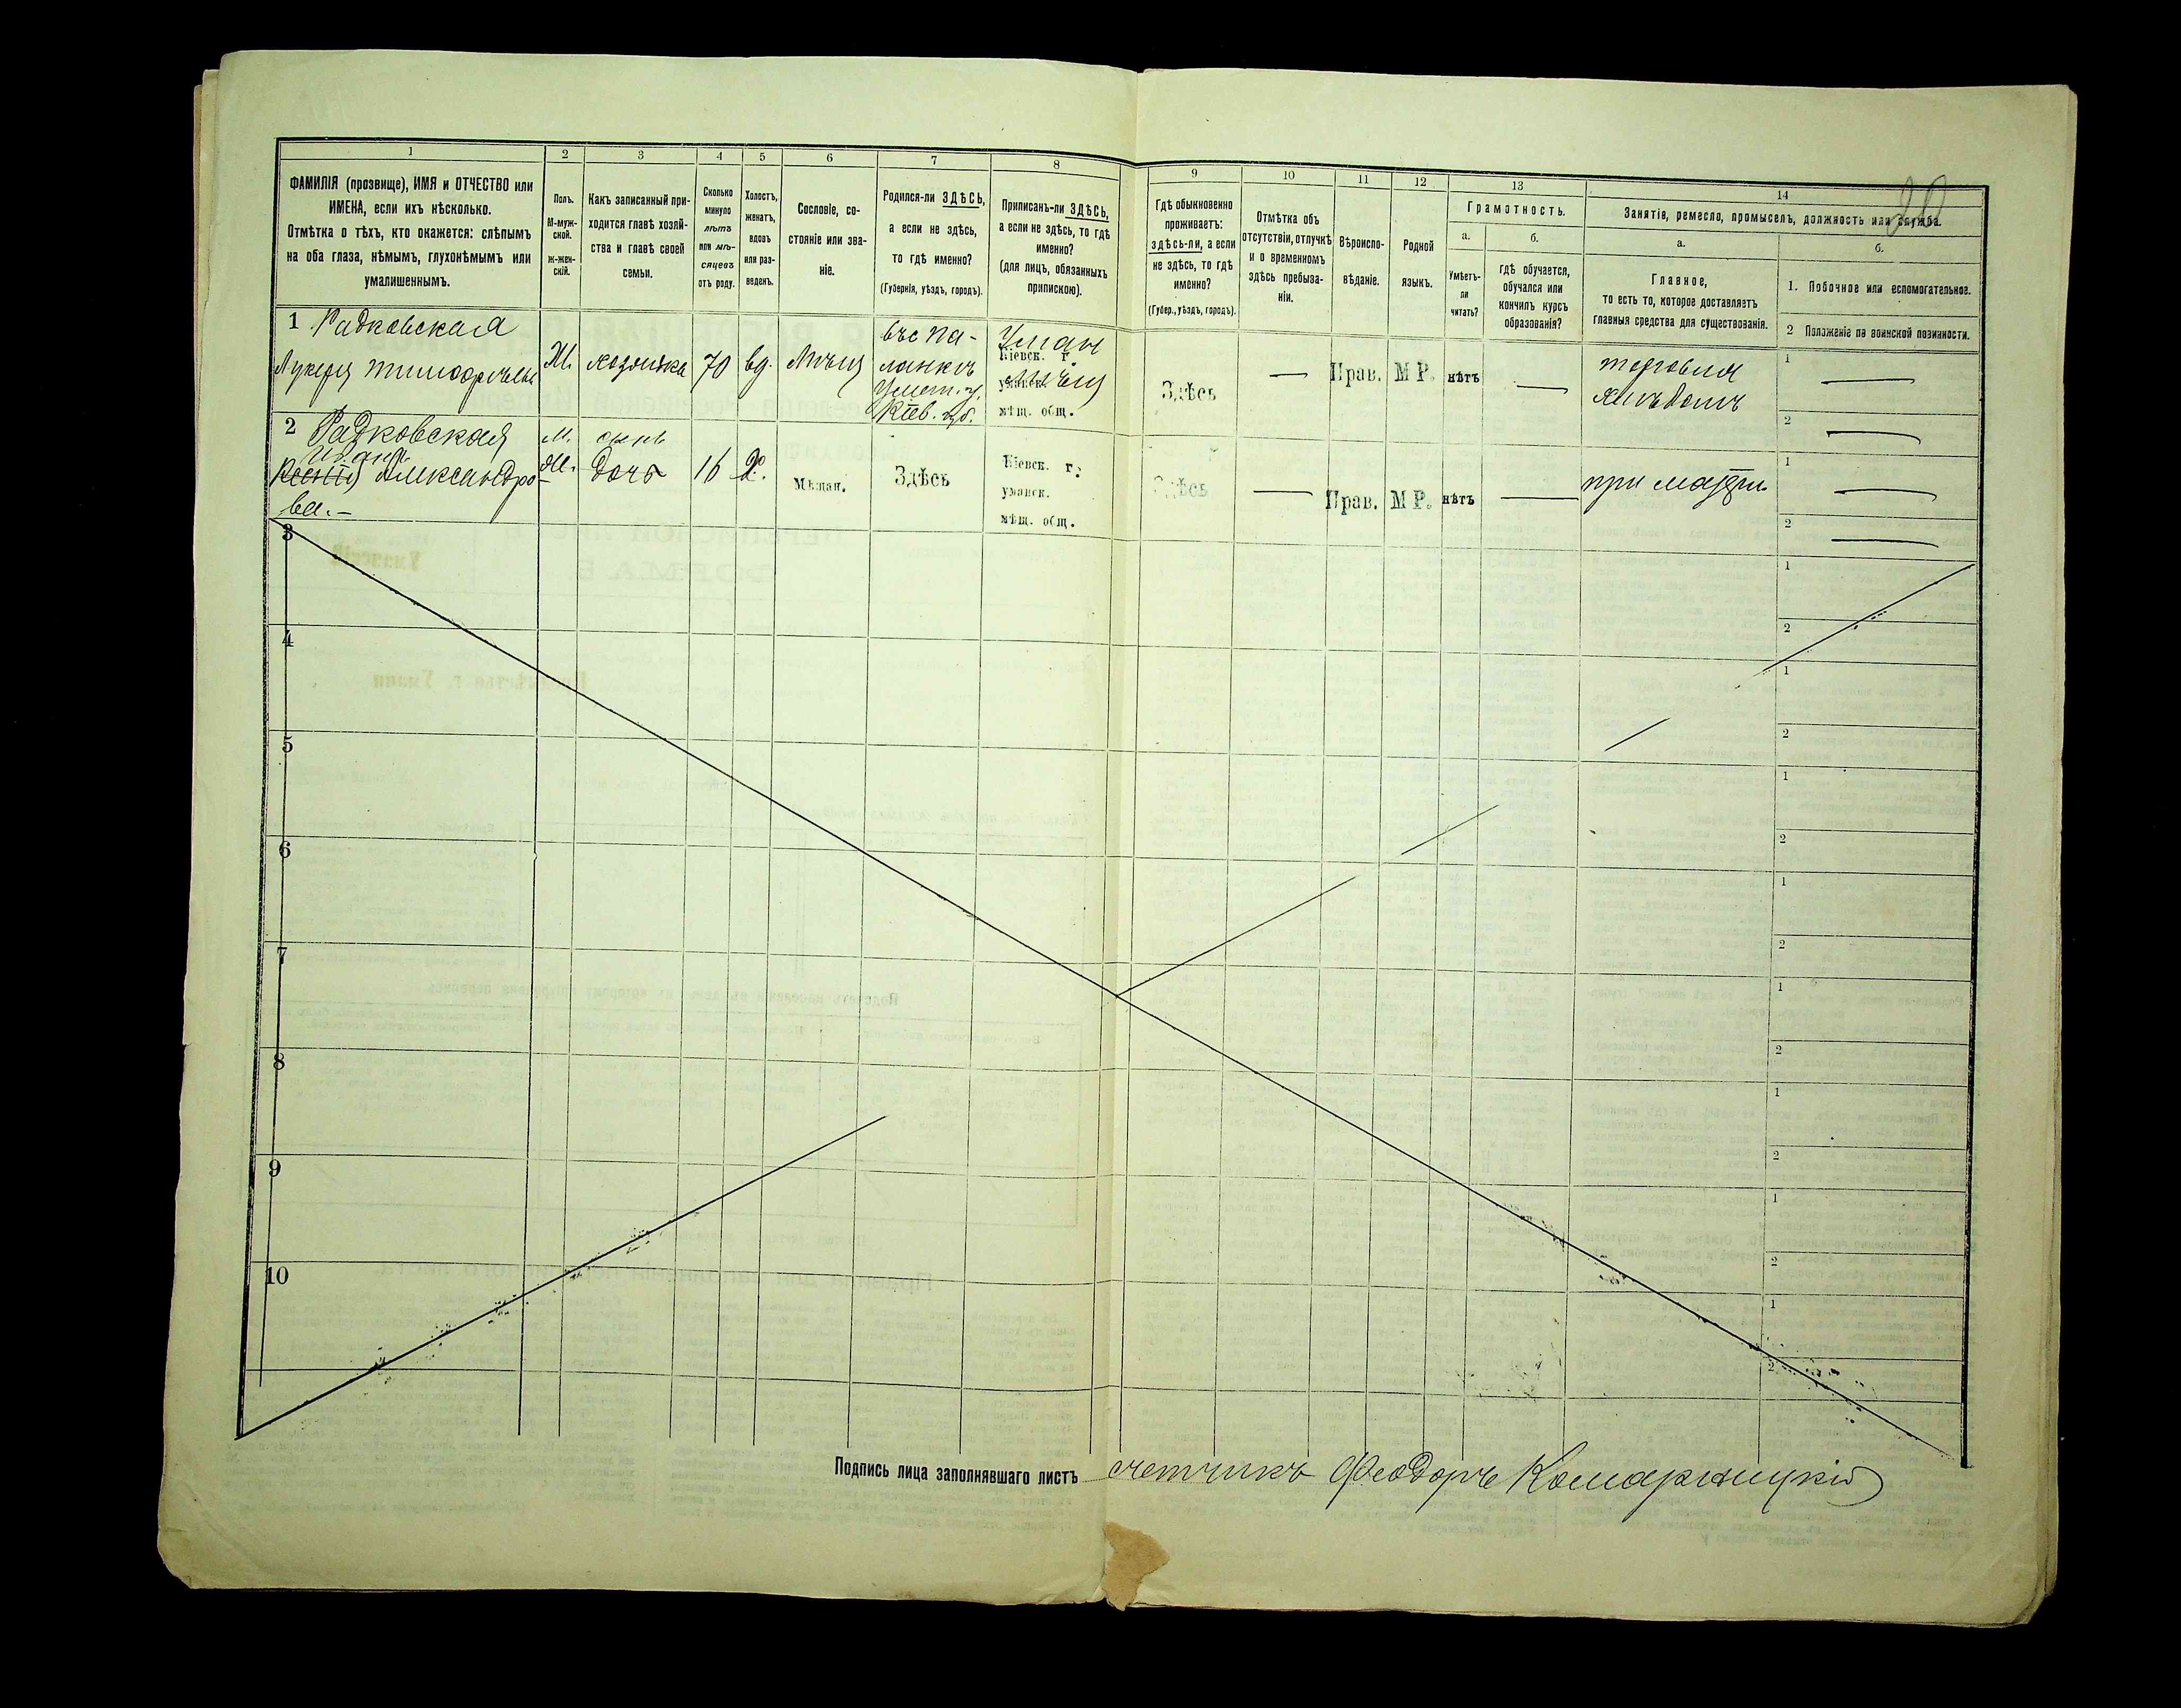 1
2
3
4
5
6
7
8
9
10
11
12
13
14
20
ФАМИЛІЯ (прозвище), ИМЯ и ОТЧЕСТВО или
ИМЕНА, если ихъ нѣсколько.
Отмѣтка о тѣхъ, кто окажется: слѣпымъ
на оба глаза, нѣмымъ, глухонѣмымъ или
умалишеннымъ.
Полъ.
М-муж-
ской.
ж-жен-
скій.
Какъ записанный при-
ходится главѣ хозяй-
ства и главѣ своей
семьи.
Сколько
минуло
лѣтъ
или мѣ-
сяцевъ
отъ роду.
Холостъ,
женатъ,
вдовъ
или раз-
веденъ.
Сословіе, со-
стояніе или зва-
ніе.
Родился-ли ЗДѢСЬ,
а если не здѣсь,
то гдѣ именно?
(Губернія, уѣздъ, городъ).
Приписанъ-ли ЗДѢСЬ,
а если не здѣсь, то гдѣ
именно?
(для лицъ, обязанныхъ
припискою).
Гдѣ обыкновенно
проживаетъ:
здѣсь-ли, а если
не здѣсь, то гдѣ
именно?
(Губер., уѣздъ, городъ).
Отмѣтка объ
отсутствіи, отлучкѣ
и о временномъ
здѣсь пребыва-
ніи.
Вѣроиспо-
вѣданіе.
Родной
языкъ.
Грамотность.
а.
Умѣетъ-
ли
читать?
б.
гдѣ обучается,
обучался или
кончилъ курсъ
образованія?
Занятіе, ремесло, промыселъ, должность или служба.
а.
Главное,
то есть то, которое доставляетъ
главныя средства для существованія.
б.
1. Побочное или вспомогательное.
2 Положеніе по воинской повинности.
1 Радковская
Лукерія
Ж.
хозяйка
70
вд.
Мѣщ
въ с Па-
ланкѣ
Уман. у.
Кіев. губ.
Умань
Кіевск. г.
уманск.
мѣщ. общ.
Здѣсь
—
Прав.
МР.
нѣтъ
—
торговля
хлѣбомъ
1 —
2 —
2 Радковская
Александро
ва.-
М.
Ж.
сынъ
дочь
16
Х.
Мѣщан.
Здѣсь
Кіевск. г.
уманск.
мѣщ. общ.
Здѣсь
—
Прав.
МР.
нѣтъ
—
при матери
1 —
2 —
3
1
2
4
1
2
5
1
2
6
1
2
7
1
2
8
1
2
9
1
2
10
1
2
Подпись лица заполнявшаго листъ счетчикъ Феодоръ Комарницкій